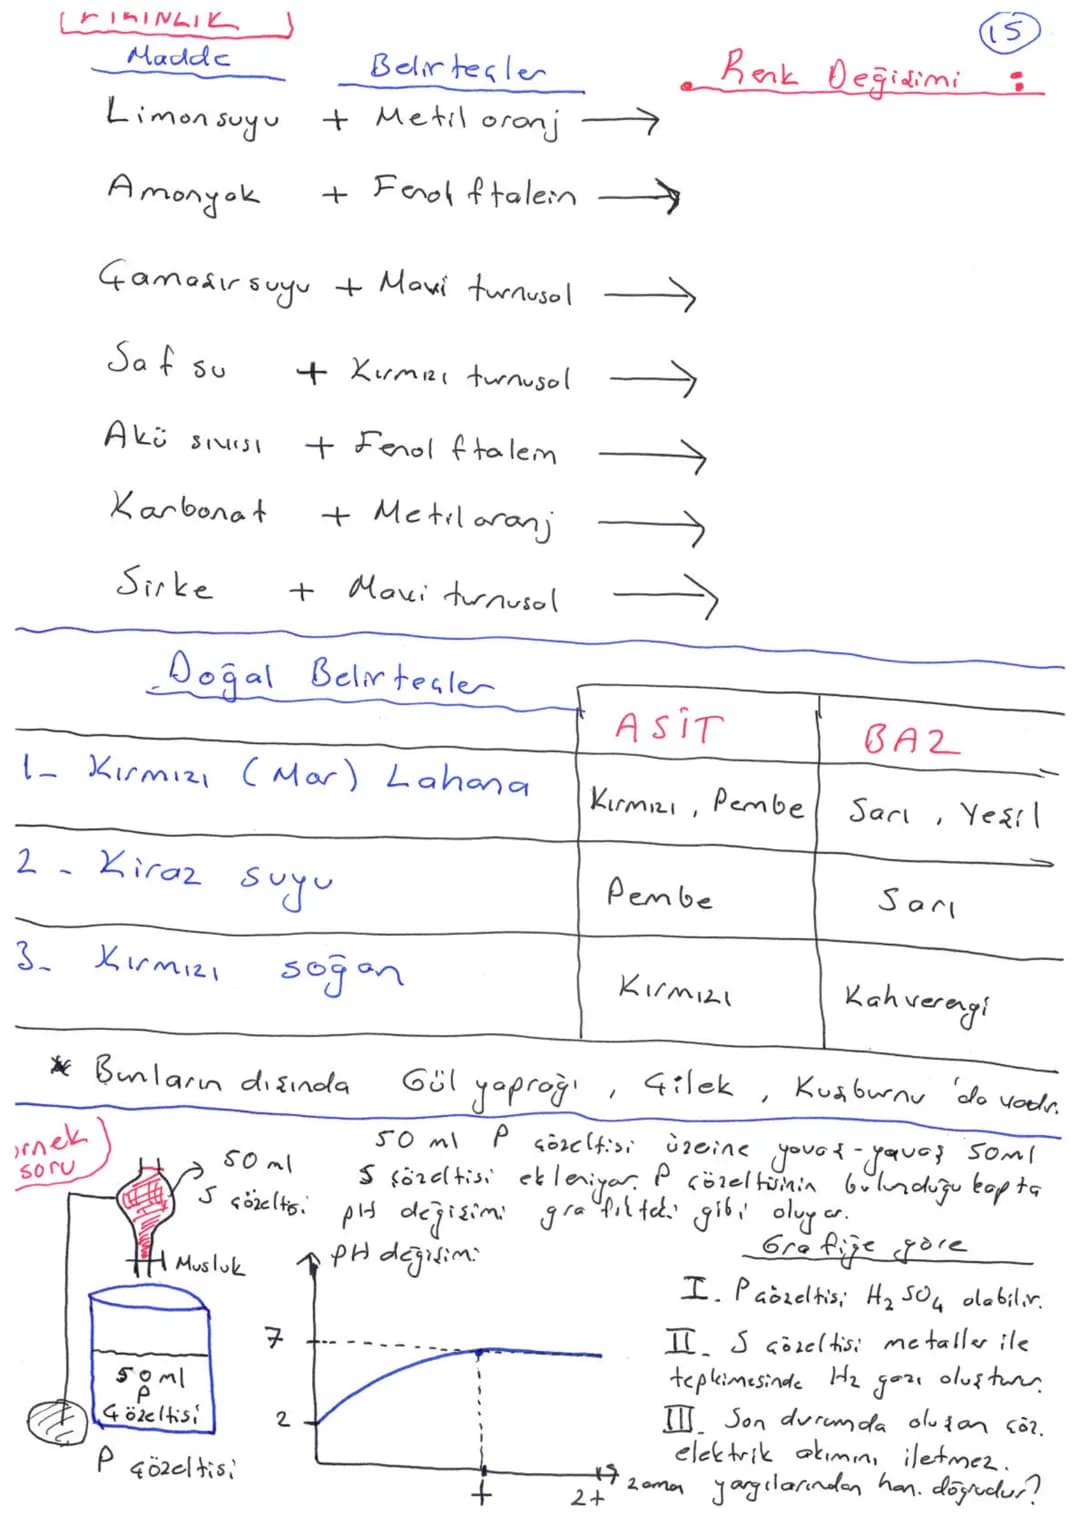 15
Madde Belirteçler Renk Değişimi :
Limon suyu + Metil oranj →
Amonyak + Fenol ftalein →
Çamaşır suyu + Mavi turnusol →
Saf su + Kırmızı turnusol →
Akü sıvısı + Fenol ftalein →
Karbonat + Metil oranj →
Sirke + Mavi turnusol →
Doğal Belirteçler
ASİT BAZ
1- Kırmızı (Mor) Lahana Kırmızı, Pembe Sarı, Yeşil
2- Kiraz suyu Pembe Sarı
3- Kırmızı soğan Kırmızı Kahverengi
* Bunların dışında Gül yaprağı, Çilek, Kuşburnu 'da vardır.
örnek soru
50 ml P çözeltisi üzerine yavaş-yavaş 50ml
S çözeltisi ekleniyor. P çözeltisinin bulunduğu kapta
pH değişimi grafikteki gibi oluyor.
50 ml
S çözeltisi
Musluk
50 ml
P
Çözeltisi
P çözeltisi
pH değişimi
7
2
t 2t zaman
Grafiğe göre
I. P çözeltisi H2SO4 olabilir.
II. S çözeltisi metaller ile
tepkimesinde H2 gazı oluşturur.
III. Son durumda oluşan çöz.
elektrik akımını iletmez.
yargılarından han. doğrudur?